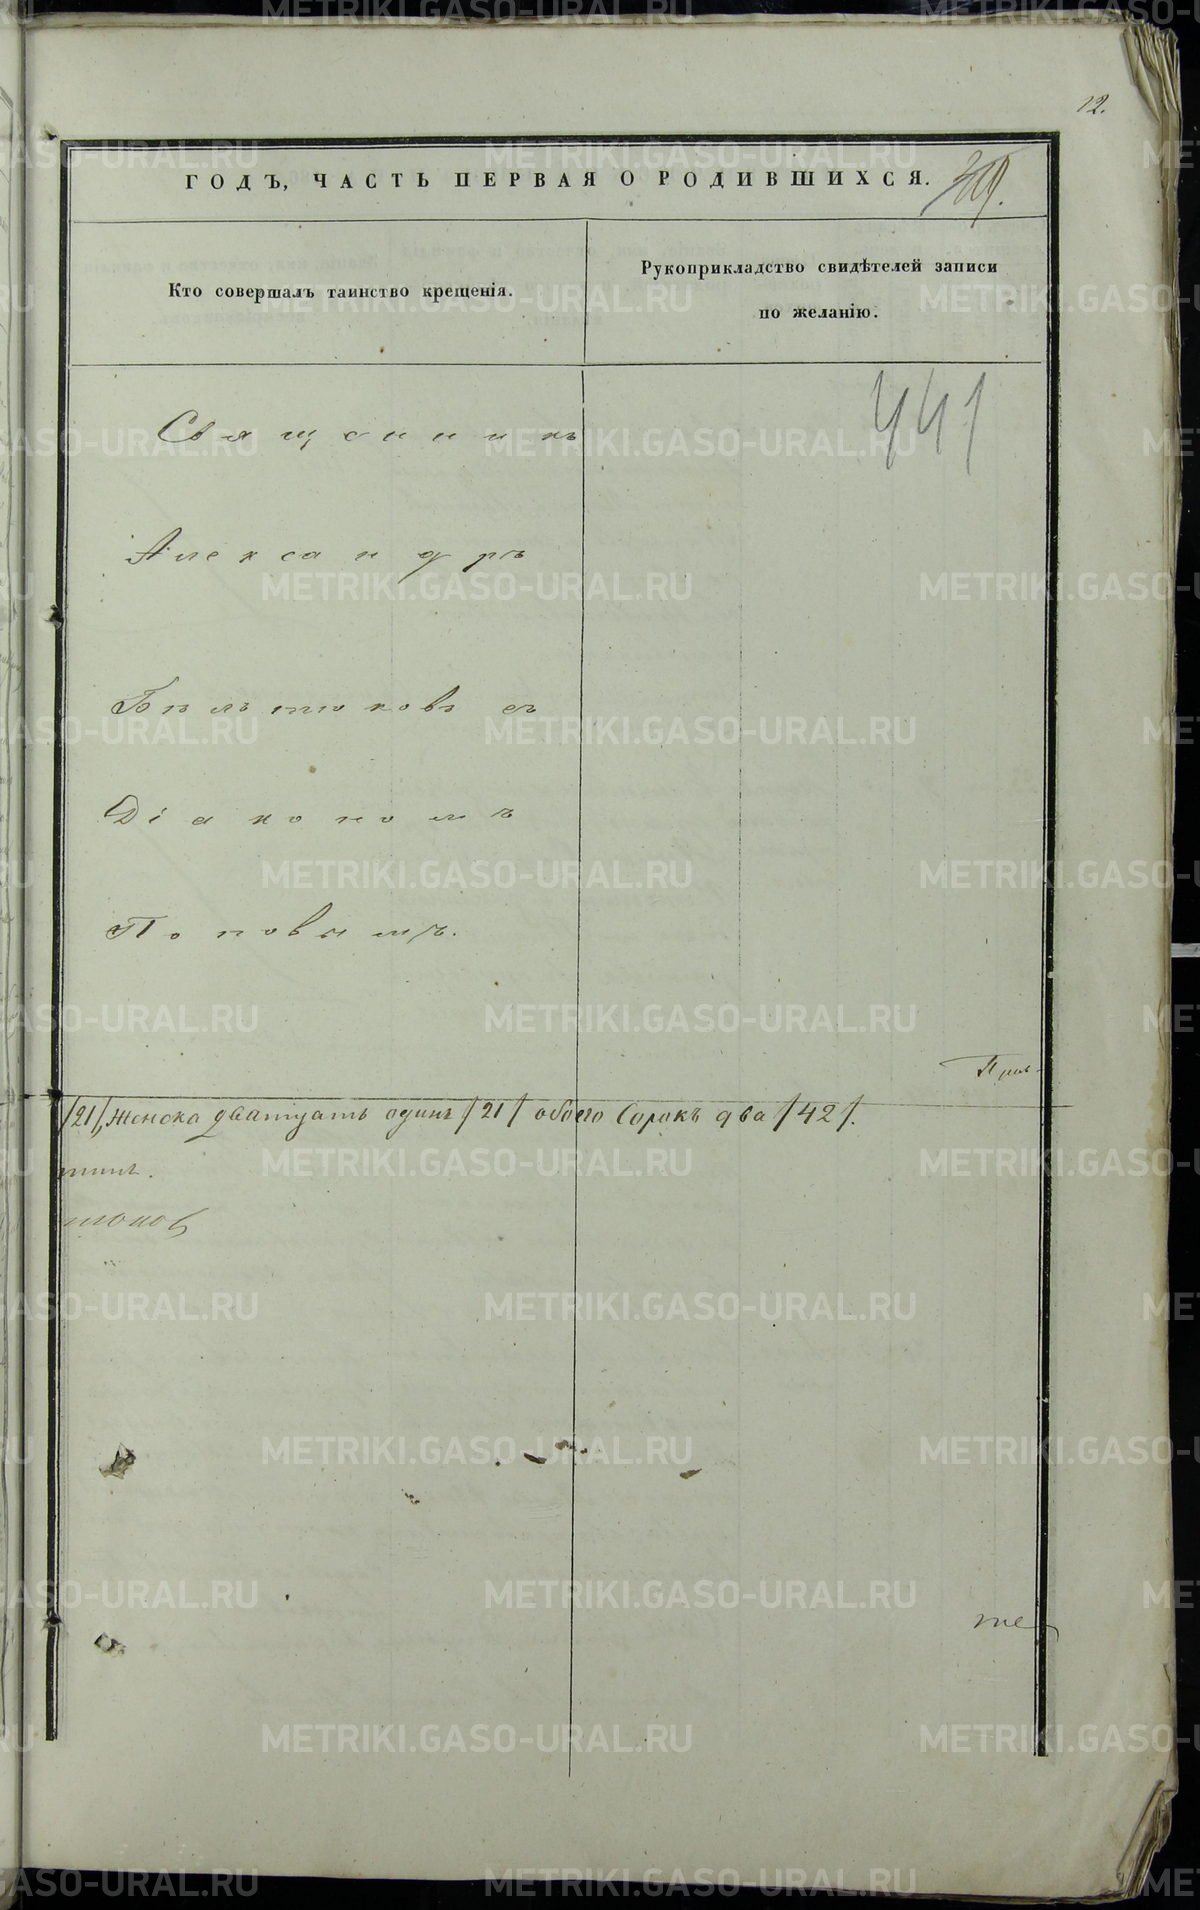 12.
ГОДЪ, ЧАСТЬ ПЕРВАЯ О РОДИВШИХСЯ.
Кто совершалъ таинство крещенія.
Рукоприкладство свидѣтелей записи
по желанію.
441
Священникъ
Александръ
съ
Діакономъ
Поповымъ.
/21/, женска дватцать одинъ /21/ обоего Сорокъ два /42/.
METRIKI.GASO-URAL.RU